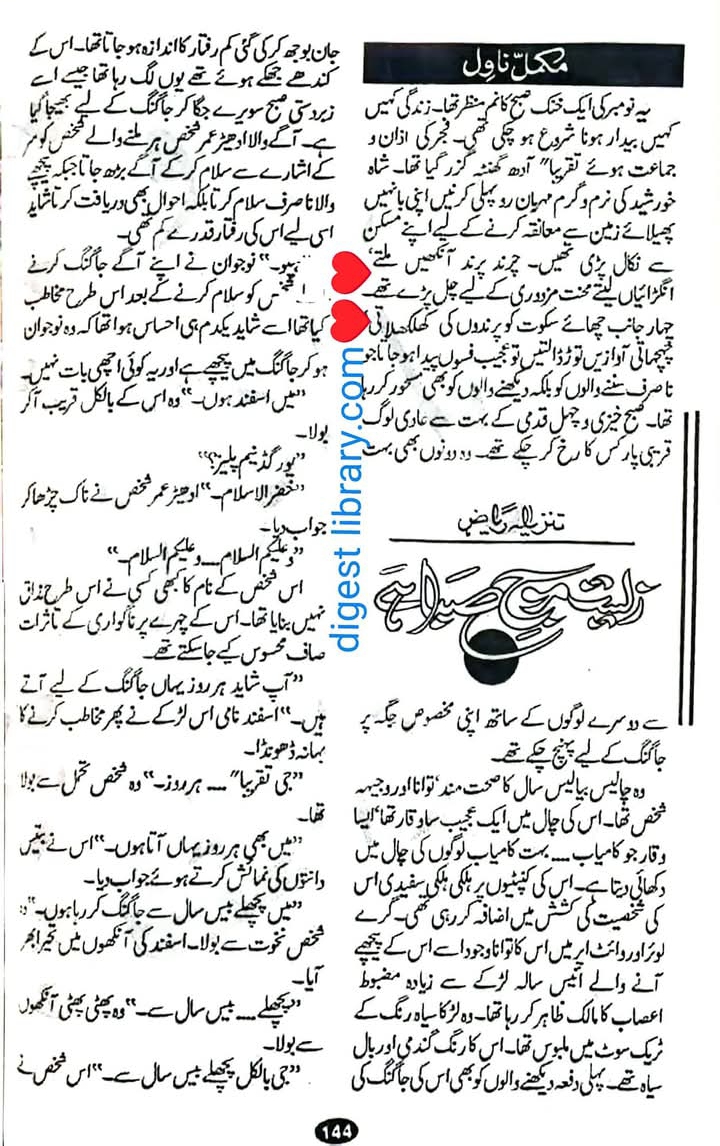 مکمل ناول
یہ نومبر کی ایک خنک صبح کا نم منظر تھا۔ زندگی کہیں
کہیں بیدار ہونا شروع ہو چکی تھی۔ فجر کی اذان و
جماعت ہوئے تقریباً" آدھ گھنٹہ گزر گیا تھا۔ شاہ
خورشید کی نرم و گرم مہربان روپہلی کرنیں اپنی بانہیں
پھیلائے زمین سے معانقہ کرنے کے لیے اپنے مسکن
سے نکل پڑی تھیں۔ چرند پرند آنکھیں ملتے‘
انگڑائیاں لیتے محنت مزدوری کے لیے چل پڑے تھے۔
چہار جانب چھائے سکوت کو پرندوں کی کھلکھلاتی
چہچہاتی آوازیں توڑ ڈالتیں تو عجیب فسوں پیدا ہو جاتا جو
ناصرف سننے والوں کو بلکہ دیکھنے والوں کو بھی مسحور کر رہا
تھا۔ صبح خیزی و چہل قدمی کے بہت سے عادی لوگ
قریبی پارکس کا رخ کر چکے تھے۔ وہ دونوں بھی بہت
تنزیلہ ریاض
زیست موج صبرا ہے
سے دوسرے لوگوں کے ساتھ اپنی مخصوص جگہ پر
جاگنگ کے لیے پہنچ چکے تھے۔
وہ چالیس بیالیس سال کا صحت مند‘ توانا اور وجیہہ
شخص تھا۔ اس کی چال میں ایک عجیب سا وقار تھا‘ ایسا
وقار جو کامیاب .... بہت کامیاب لوگوں کی چال میں
دکھائی دیتا ہے۔ اس کی کنپٹیوں پر ہلکی ہلکی سفیدی اس
کی شخصیت کی کشش میں اضافہ کر رہی تھی۔ گرے
لوئر اور وائٹ اپر میں اس کا توانا وجود اسے اس کے پیچھے
آنے والے انیس سالہ لڑکے سے زیادہ مضبوط
اعصاب کا مالک ظاہر کر رہا تھا۔ وہ لڑکا سیاہ رنگ کے
ٹریک سوٹ میں ملبوس تھا۔ اس کا رنگ گندمی اور بال
سیاہ تھے۔ پہلی دفعہ دیکھنے والوں کو بھی اس کی جاگنگ کی
جان بوجھ کر کی گئی کم رفتار کا اندازہ ہو جاتا تھا۔ اس کے
کندھے جھکے ہوئے تھے یوں لگ رہا تھا جیسے اسے
زبردستی صبح سویرے جگا کر جاگنگ کے لیے بھیجا گیا
ہے۔ آگے والا ادھیڑ عمر شخص ہر ملنے والے شخص کو سر
کے اشارے سے سلام کر کے آگے بڑھ جاتا جبکہ پیچھے
والا ناصرف سلام کرتا بلکہ احوال بھی دریافت کرتا شاید
اسی لیے اس کی رفتار قدرے کم تھی۔
ہیلو۔“ نوجوان نے اپنے آگے جاگنگ کرتے
کو سلام کرنے کے بعد اس طرح مخاطب
کیا تھا اسے شاید یکدم ہی احساس ہوا تھا کہ وہ نوجوان
ہو کر جاگنگ میں پیچھے ہے اور یہ کوئی اچھی بات نہیں۔
”میں اسفند ہوں۔“ وہ اس کے بالکل قریب آ کر
بولا۔
”یور گڈ نیم پلیز؟“
”خضر الاسلام۔“ ادھیڑ عمر شخص نے ناک چڑھا کر
جواب دیا۔
”وعلیکم السلام .... وعلیکم السلام۔“
اس شخص کے نام کا بھی کسی نے اس طرح مذاق
نہیں بنایا تھا۔ اس کے چہرے پر ناگواری کے تاثرات
صاف محسوس کیے جا سکتے تھے۔
”آپ شاید ہر روز یہاں جاگنگ کے لیے آتے
ہیں۔“ اسفند نامی اس لڑکے نے پھر مخاطب کرنے کا
بہانہ ڈھونڈا۔
”جی تقریباً" .... ہر روز۔“ وہ شخص تحمل سے بولا
تھا۔
”میں بھی ہر روز یہاں آتا ہوں۔“ اس نے بتیس
دانتوں کی نمائش کرتے ہوئے جواب دیا۔
”میں پچھلے بیس سال سے جاگنگ کر رہا ہوں۔“ وہ
شخص نخوت سے بولا۔ اسفند کی آنکھوں میں تحیر ابھر
آیا۔
”پچھلے .... بیس سال سے۔“ وہ پھٹی پھٹی آنکھوں
سے بولا۔
”جی بالکل پچھلے بیس سال سے۔“ اس شخص نے
digest library.com
144